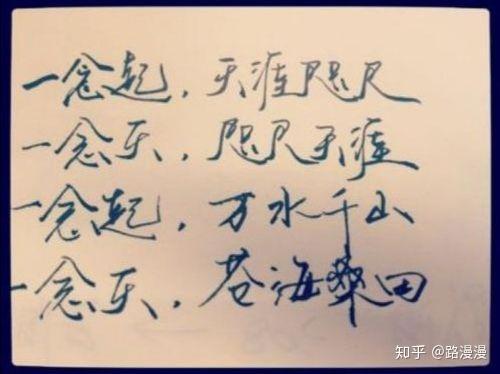 一念起，天涯咫尺
一念灭，咫尺天涯
一念起，万水千山
一念灭，苍海桑田
知乎 @路漫漫